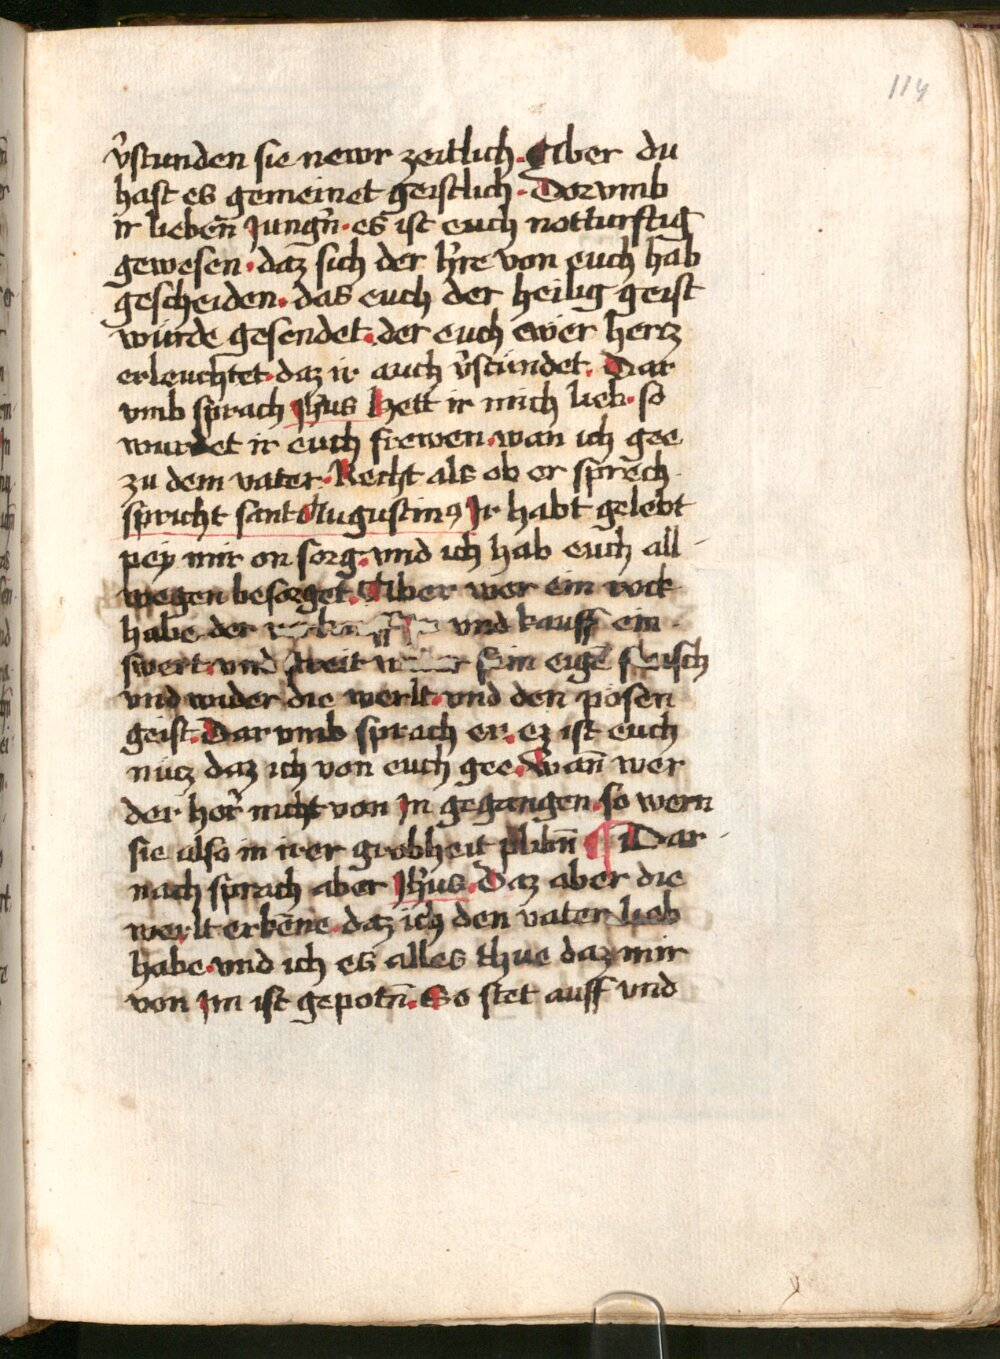 114
v̾stunden sie newr zeitlich. Aber du
hast es gemeinet geistlich. Dorvmb
ir lieben̄ Jungn̄. es ist euch notturftig
gewesen. daz sich der h̾re von euch hab
gescheiden. das euch der heilig geist
würde gesendet. der euch ewer hertz
erleuchtet. daz ir auch v̾stündet. Dar
vmb sprach Jh̾us Hett ir mich lieb. so
wurdet ir euch frewen. wan ich gee
zu dem vater. Recht als ob er sprech
spricht sant Augustinꝰ Ir habt gelebt
pey mir on sorg. vnd ich hab euch all
wegen besorget. Aber wer ein rock
habe der vnd kauff ein
swert. vnd streit sein eigē fleisch
vnd wider die werlt. vnd den pösen
geist. Darvmb sprach er. ez ist euch
nücz daz ich von euch gee. Wan̄ wer
der her̾ nicht von Jn gegangen. so wern
sie also in irer grobheit plibn̄ ¶ Dar
nach sprach aber Jh̾us. Daz aber die
werlt erkēne. daz ich den vater lieb
habe. vnd ich es alles thue daz mir
von Jm ist gepotn̄. So stet auff vnd